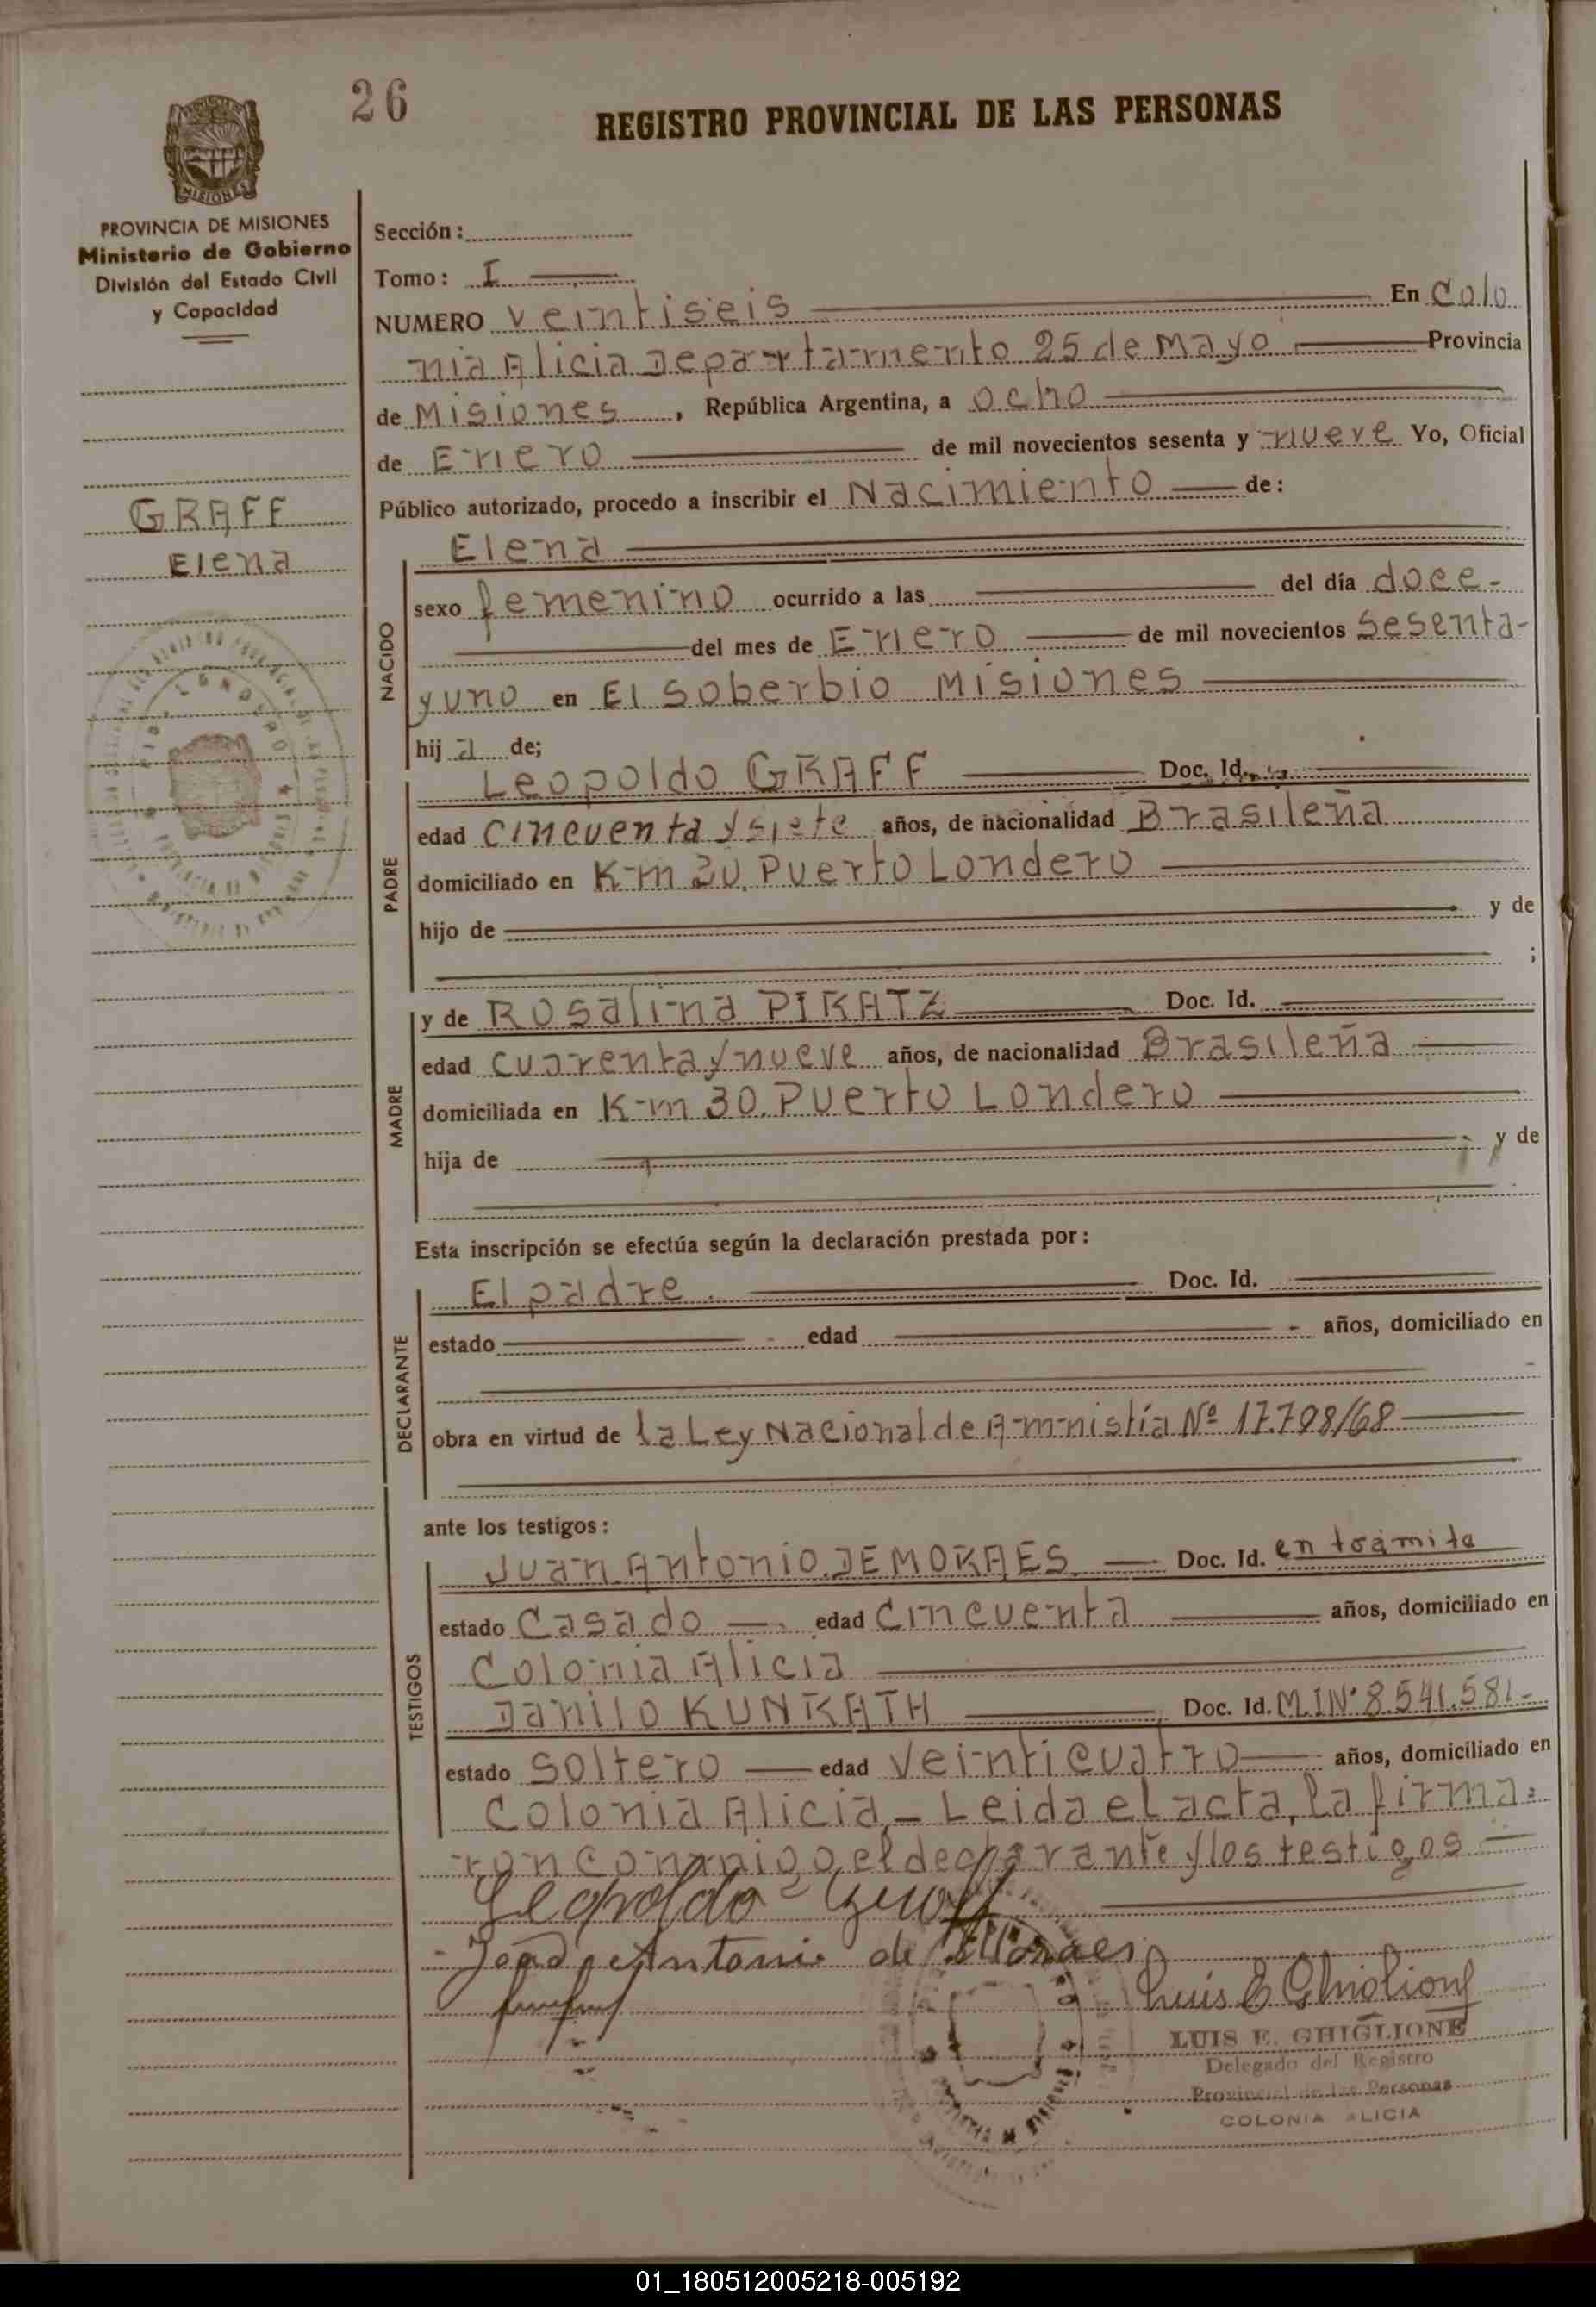 26
REGISTRO PROVINCIAL DE LAS PERSONAS
MISIONES
PROVINCIA DE MISIONES
Ministerio de Gobierno
División del Estado Civil
y Capacidad
GRAFF
Elena
Sección:
Tomo: I
NUMERO veintiseis En Colo
nia Alicia Departamento 25 de Mayo Provincia
de Misiones, República Argentina, a ocho
de Enero de mil novecientos sesenta y nueve Yo, Oficial
Público autorizado, procedo a inscribir el Nacimiento de:
NACIDO
Elena
sexo femenino ocurrido a las del día doce-
del mes de Enero de mil novecientos sesenta-
y uno en El Soberbio Misiones
hij a de;
PADRE
Leopoldo GRAFF Doc. Id.
edad cincuenta y siete años, de nacionalidad Brasileña
domiciliado en Km 30. Puerto Londero
hijo de y de
;
MADRE
y de Rosalina PIRATZ Doc. Id.
edad cuarenta y nueve años, de nacionalidad Brasileña
domiciliada en Km 30. Puerto Londero
hija de y de
Esta inscripción se efectúa según la declaración prestada por:
DECLARANTE
El padre. Doc. Id.
estado edad años, domiciliado en
obra en virtud de la Ley Nacional de Amnistía Nº 17.798/68
ante los testigos:
TESTIGOS
Juan Antonio DE MORAES Doc. Id. en trámite
estado Casado edad Cincuenta años, domiciliado en
Colonia Alicia
Danilo KUNRATH Doc. Id. M.I Nº 8.541.581-
estado Soltero edad Veinticuatro años, domiciliado en
Colonia Alicia.- Leida el acta, la firma=
ron conmigo, el declarante y los testigos
Leopoldo Graff
Joao Antonio de Moraes
Luis E Ghiglione
LUIS E. GHIGLIONE
Delegado del Registro
Provincial de las Personas
COLONIA ALICIA
01_180512005218-005192